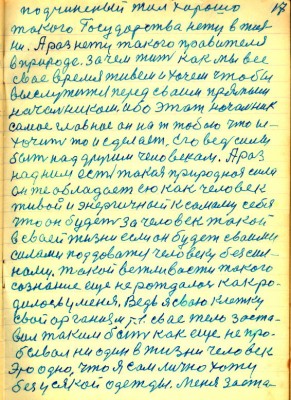 подчиненный жил хорошо
такого Государства нету в жиз
ни. А раз нету такого правителя
в природе. Зачем жить как мы все
свае время живем и хочем чтобы
выслужится перед своим прямым
начальником. ибо этат начальник
самое главное он на тобою что и
хочить то и сделает. Его ведь сила
быть над другим человеком. А раз
над ним есть такая природная сила
он те обладает ею как человек
живой и энергичный к самому себя
что он будеть за человек такой
в своей жизни если он будет своими
силами поддоватц человеку безсиль
ному. такой вежливасти такого
сознание еще не рождалос как ро-
дилось у меня. Ведь я сваю клетку
свой организм т.е. свае тело заста-
вил таким быть как еще не про-
бывал ни один в жизни человек
Это одно, что я сам лично хожу
без усякой одежды. Меня заста-